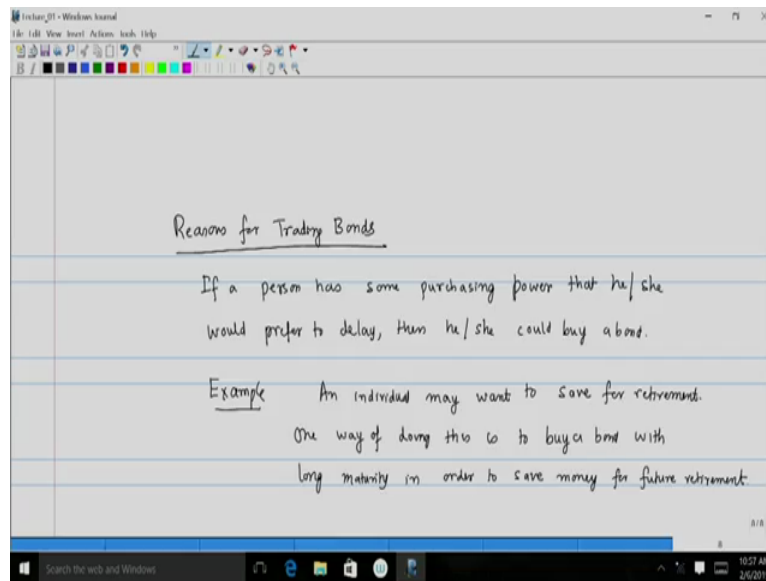 Lecture_01 - Windows Journal
File Edit View Insert Actions Tools Help
B I
Reasons for Trading Bonds
If a person has some purchasing power that he/she
would prefer to delay, then he/she could buy a bond.
Example An individual may want to save for retirement.
One way of doing this is to buy a bond with
long maturity in order to save money for future retirement.
8/8
8
Search the web and Windows
10:57 AM